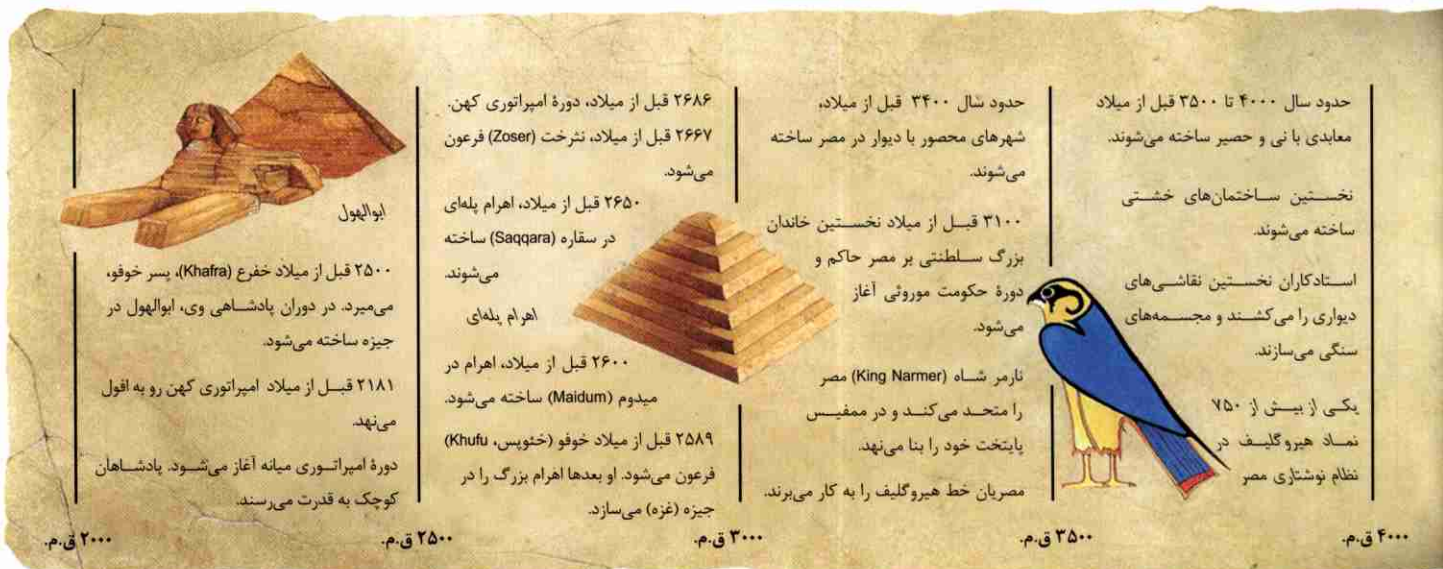 حدود سال ۴۰۰۰ تا ۳۵۰۰ قبل از میلاد
معابدی با نی و حصیر ساخته می‌شوند.
نخستین ساختمان‌های خشتی
ساخته می‌شوند.
استادکاران نخستین نقاشی‌های
دیواری را می‌کشند و مجسمه‌های
سنگی می‌سازند.
یکی از بیش از ۷۵۰
نماد هیروگلیف در
نظام نوشتاری مصر
حدود سال ۳۴۰۰ قبل از میلاد،
شهرهای محصور با دیوار در مصر ساخته
می‌شوند.
۳۱۰۰ قبل از میلاد نخستین خاندان
بزرگ سلطنتی بر مصر حاکم و
دورهٔ حکومت موروثی آغاز
می‌شود.
نارمر شاه (King Narmer) مصر
را متحد می‌کند و در ممفیس
پایتخت خود را بنا می‌نهد.
مصریان خط هیروگلیف را به کار می‌برند.
۲۶۸۶ قبل از میلاد، دورهٔ امپراتوری کهن.
۲۶۶۷ قبل از میلاد، نثرخت (Zoser) فرعون
می‌شود.
۲۶۵۰ قبل از میلاد، اهرام پله‌ای
در سقاره (Saqqara) ساخته
می‌شوند.
اهرام پله‌ای
۲۶۰۰ قبل از میلاد، اهرام در
میدوم (Maidum) ساخته می‌شود.
۲۵۸۹ قبل از میلاد خوفو (خئوپس، Khufu)
فرعون می‌شود. او بعدها اهرام بزرگ را در
جیزه (غزه) می‌سازد.
ابوالهول
۲۵۰۰ قبل از میلاد خفرع (Khafra)، پسر خوفو،
می‌میرد. در دوران پادشاهی وی، ابوالهول در
جیزه ساخته می‌شود.
۲۱۸۱ قبل از میلاد امپراتوری کهن رو به افول
می‌نهد.
دورهٔ امپراتوری میانه آغاز می‌شود. پادشاهان
کوچک به قدرت می‌رسند.
۴۰۰۰ ق.م.
۳۵۰۰ ق.م.
۳۰۰۰ ق.م.
۲۵۰۰ ق.م.
۲۰۰۰ ق.م.